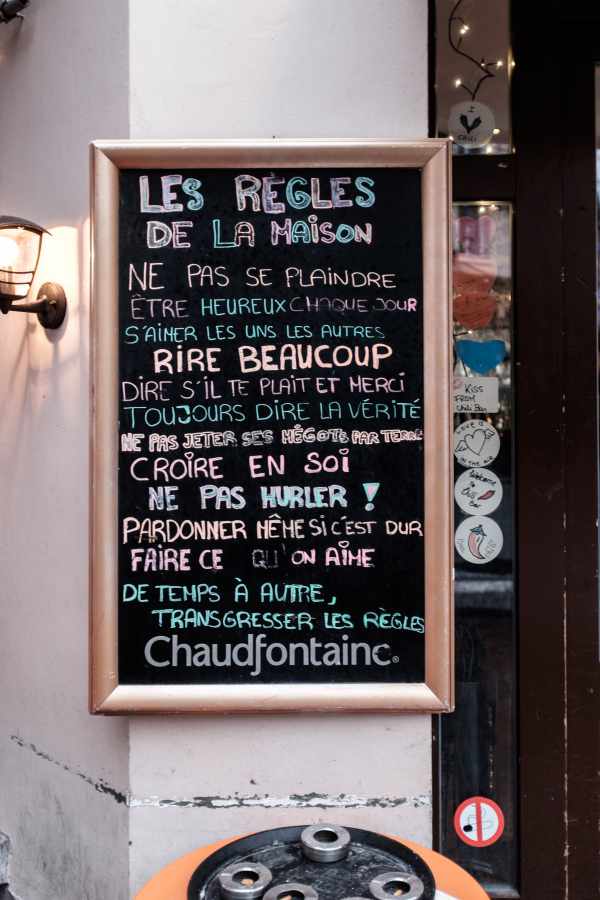 LES RÈGLES
DE LA MAISON
NE PAS SE PLAINDRE
ÊTRE HEUREUX CHAQUE JOUR
S'AIMER LES UNS LES AUTRES
RIRE BEAUCOUP
DIRE S'IL TE PLAIT ET MERCI
TOUJOURS DIRE LA VÉRITÉ
NE PAS JETER SES MÉGOTS PAR TERRE
CROIRE EN SOI
NE PAS HURLER !
PARDONNER MÊME SI C'EST DUR
FAIRE CE QU'ON AIME
DE TEMPS À AUTRE,
TRANSGRESSER LES RÈGLES
Chaudfontaine®
KISS
FROM